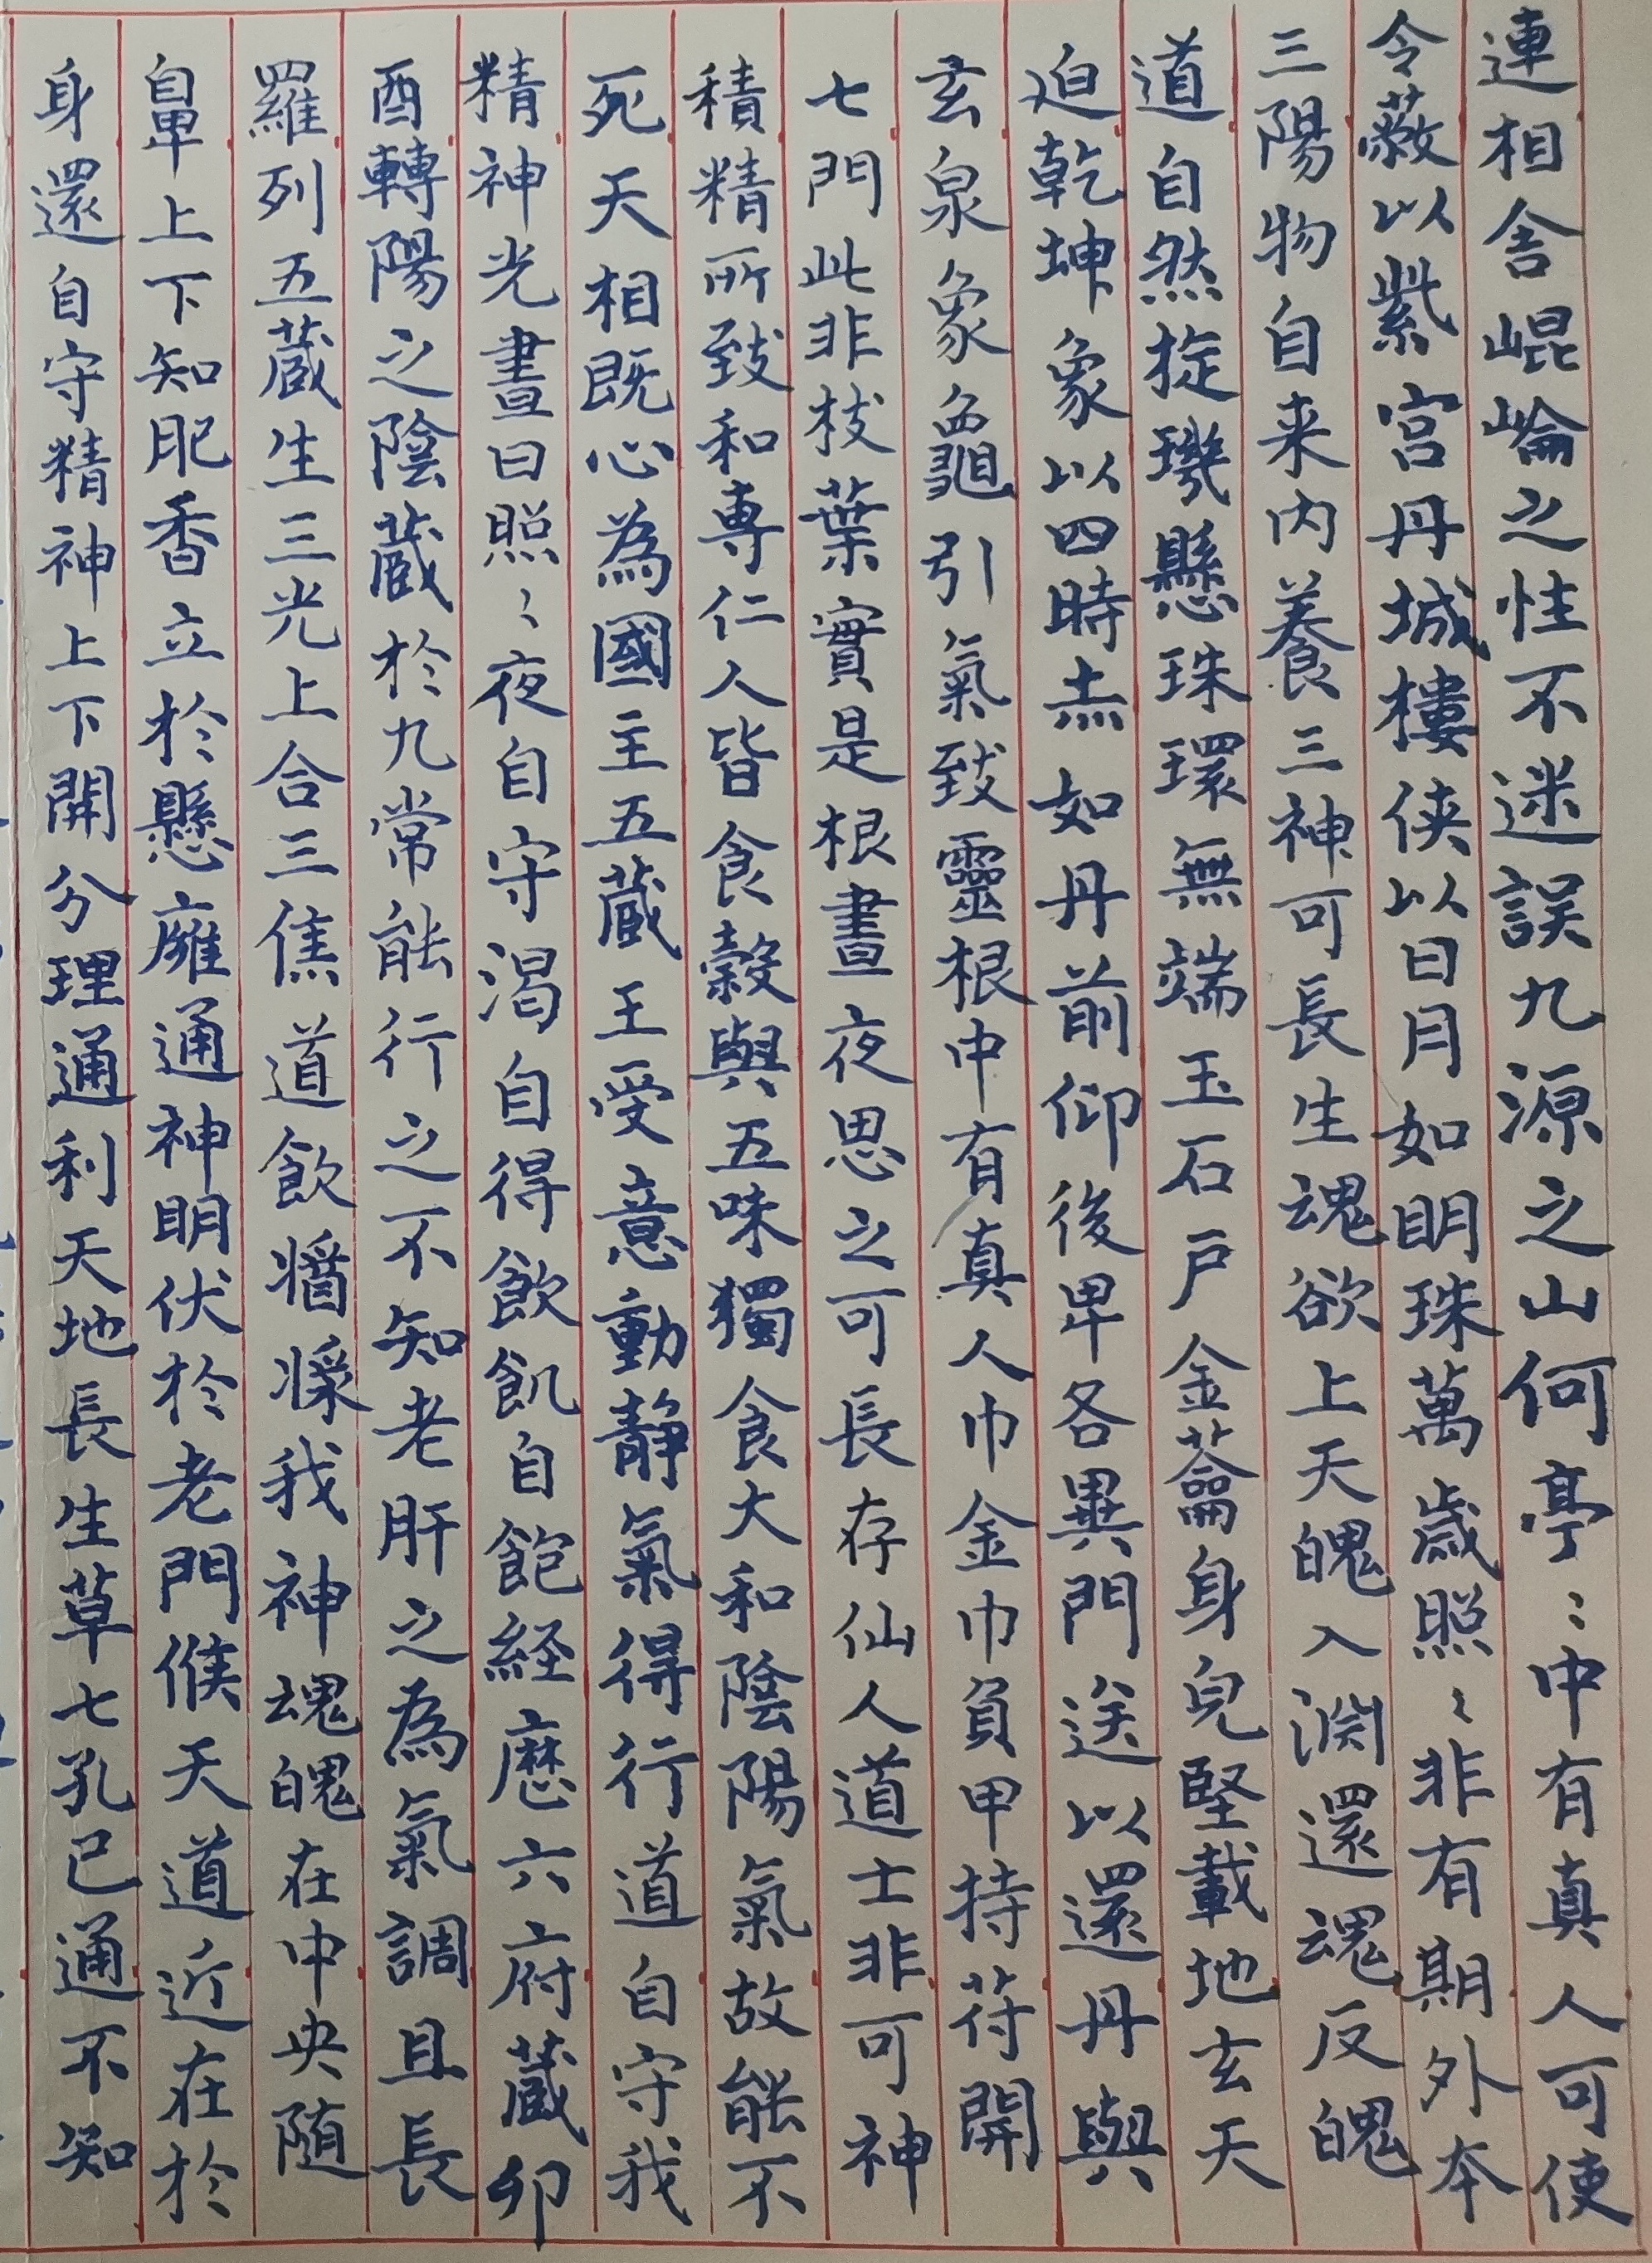 連相舍崐崘之性不迷誤九源之山何亭〻中有真人可使
令蔽以紫宮丹城樓俠以日月如明珠萬歲照〻非有期外夲
三陽物自来内養三神可長生魂欲上天魄入渊還魂反魄
道自然㨁璣懸珠環無端玉石戶金蘥身皃堅載地玄天
迫乾坤象以四時赤如丹前仰後卑各異門送以還丹與
玄泉象龜引氣致靈根中有真人巾金巾負甲持苻開
七門此非枝葉實是根晝夜思之可長存仙人道士非可神
積精所致和専仁人皆食穀與五味獨食大和陰陽氣故能不
死天相既心為國主五蔵王受意動静氣得行道自守我
精神光晝日照〻夜自守渴自得飲飢自飽経厯六府蔵卯
酉轉陽之陰蔵於九常能行之不知老肝之為氣調且長
羅列五蔵生三光上合三焦道飲醬漿我神魂魄在中央随
鼻上下知肥香立於懸膺通神明伏於老門候天道近在於
身還自守精神上下開分理通利天地長生草七孔已通不知